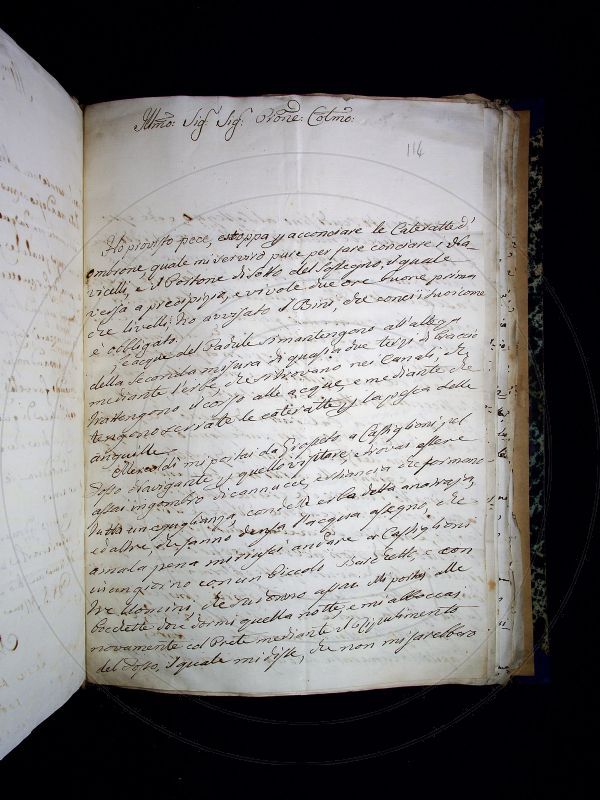 Illmo: Sig: Sig: Prone: Colmo:
114
Ho provisto pece, estoppa p acconciare le Cateratte d'
ombrone quale mi servirà pure per fare conciare i
vicelli, e il Portone di sotto del Sostegno, il quale
versa a precipizio, e vi vole due ore buone prima
che livelli; ho avvisato il Bini, che concisi sicome
è obligato.
Le acque del Padule si mantengono all'altezza
della seconda misura di quasi a due terzi di braccio
mediante l'erbe, che si trovano nei Canali, che
trattengono il corso alle acque, e mediante che
tengono serrate le cateratte p la pesca delle
anguille.
Mercoledì mi portai da Grosseto a Castiglioni pel
Fosso Navigante p quello visitare, e trovai essere
assai ingombro di cannucce, e stiancia che formano
tutta un eguaglianza, con dell'erba detta
ed altre, che fanno densa l'acqua a segno, che
a mala pena mi riuscì andare a Castiglioni
in cinqu'ore con un Piccolo Barchetto, e con
tre Uomini, che assai. Mi portai alle
dove dormì quella notte, e mi abboccai
novamente col Prete mediante
del Fosso, il quale mi disse, che non mi sarebbero